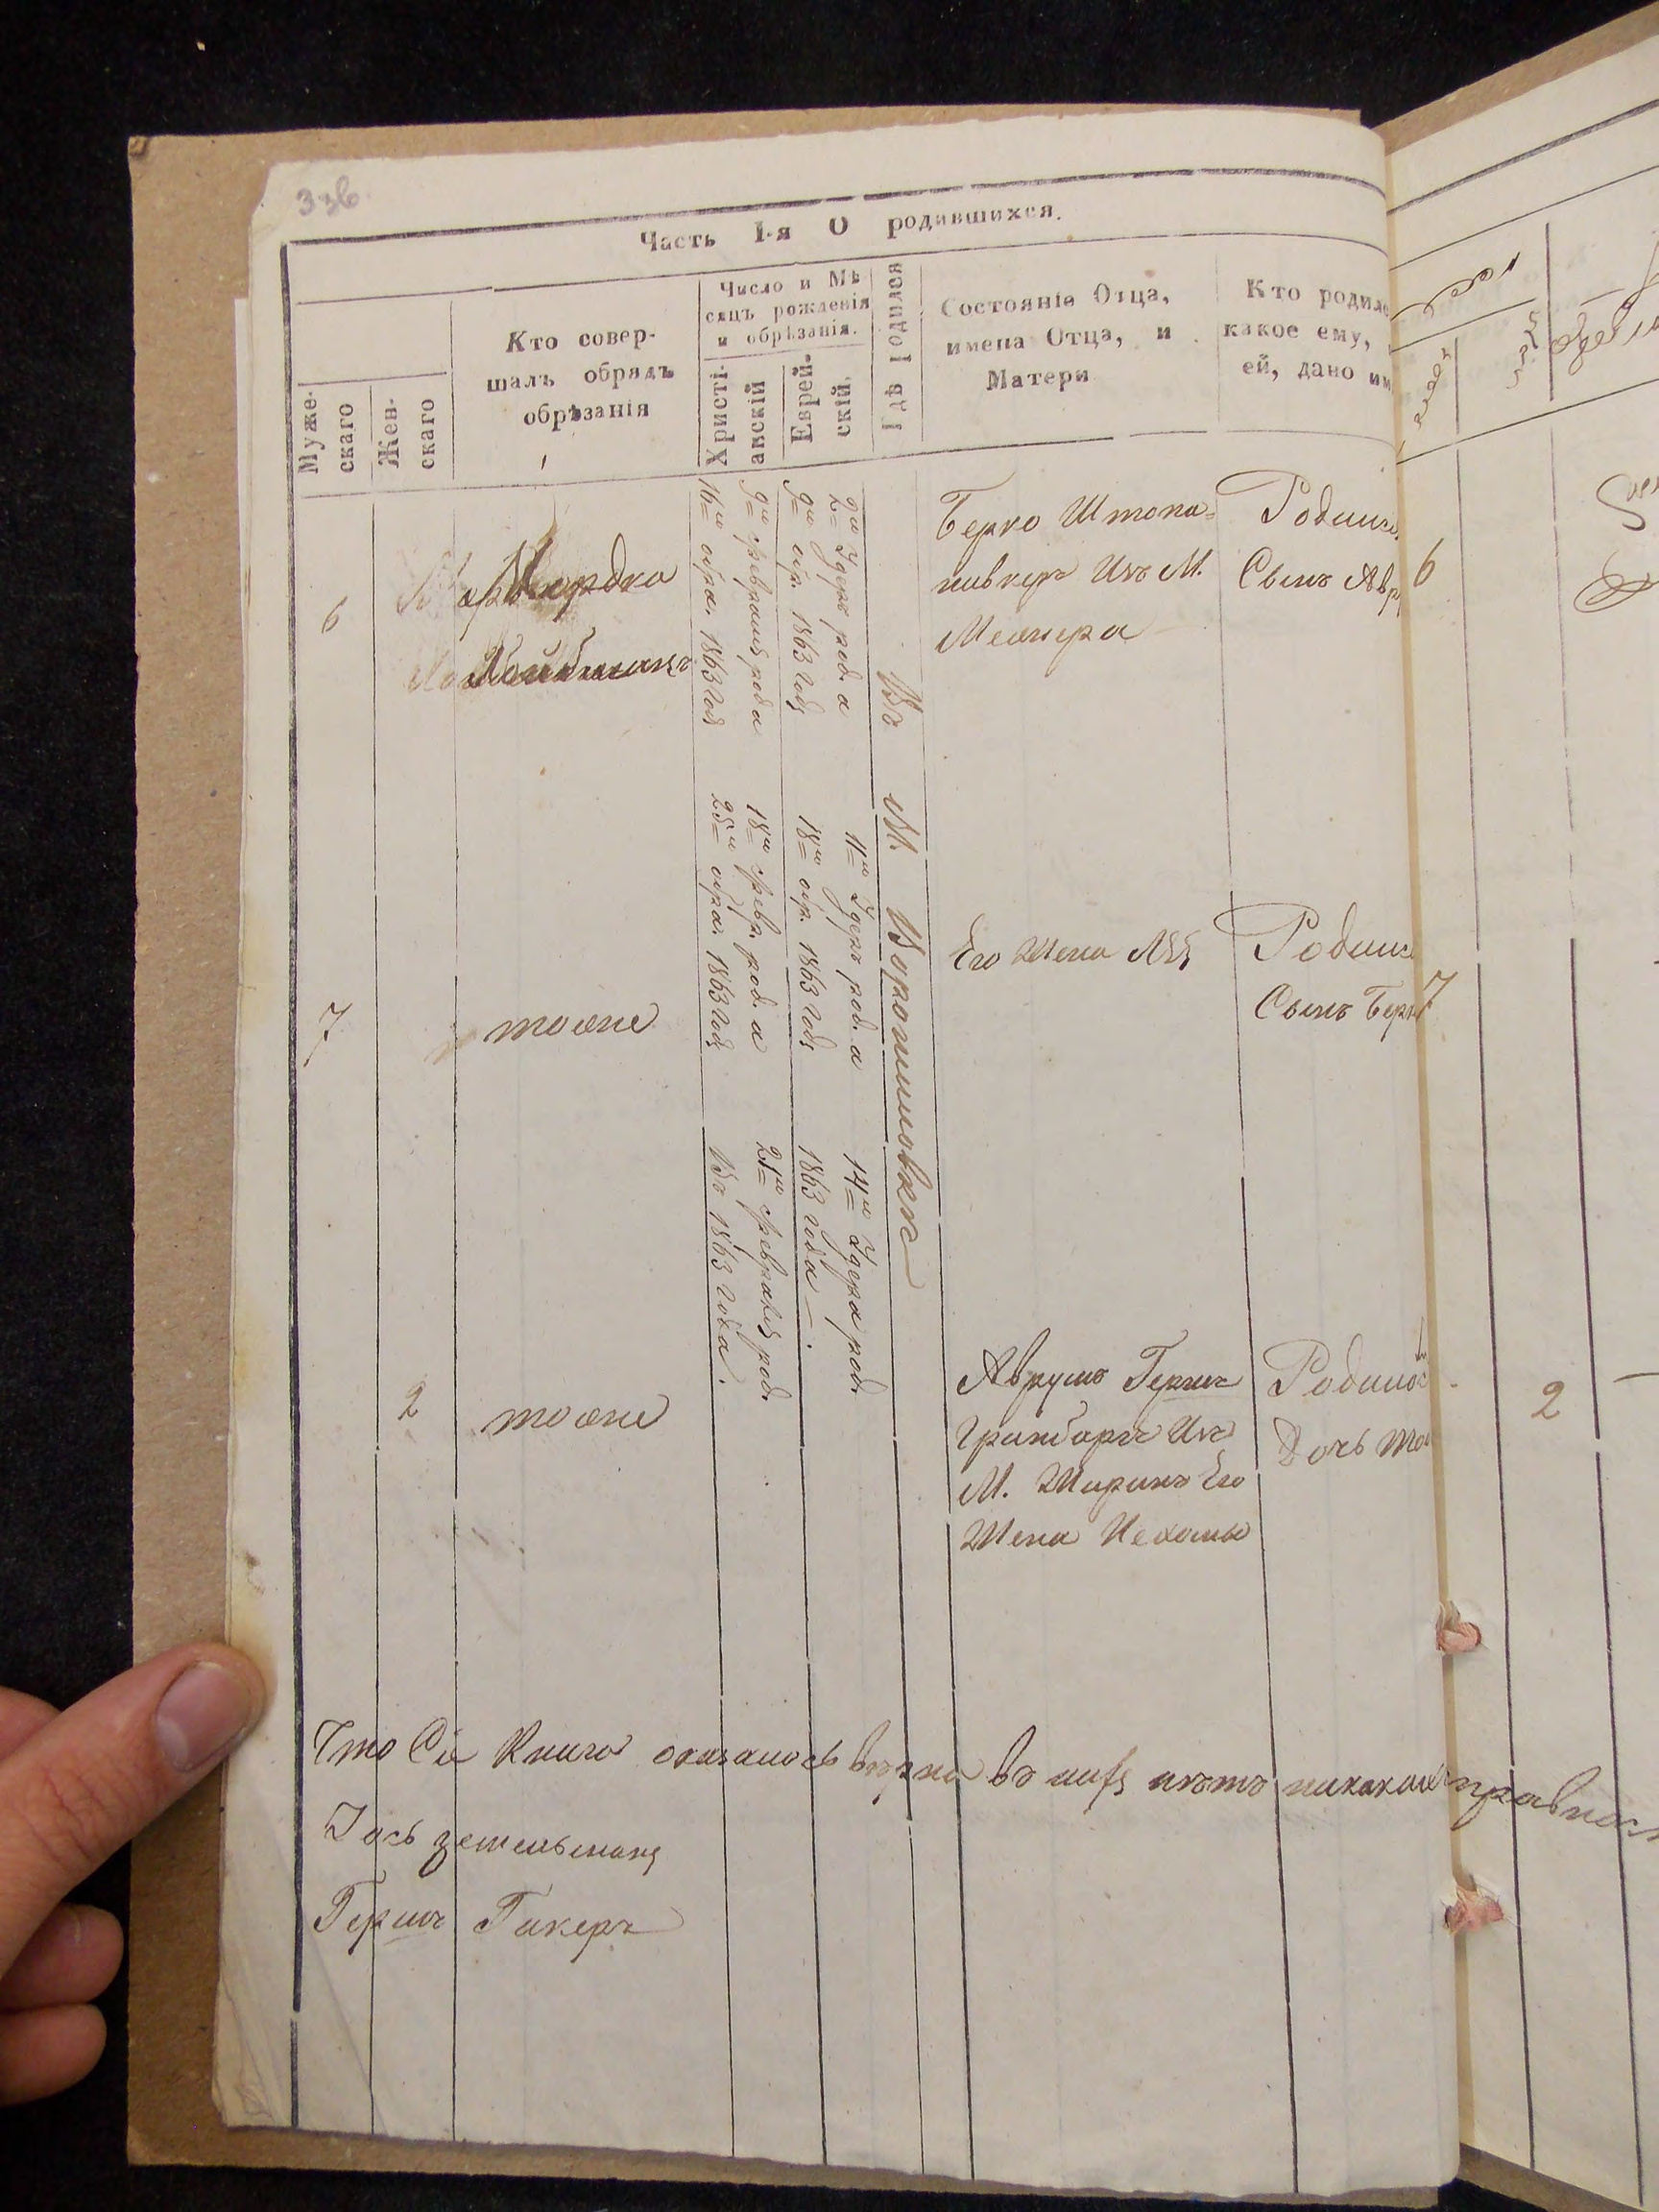 336
Часть I-я О родившихся.
Муже-
скаго
Жен-
скаго
Кто совер-
шалъ обрядъ
обрѣзанія
Число и Мѣ
сяцъ рожденія
и обрѣзанія.
Христі-
анскій
Еврей-
скій.
Гдѣ Родился
Состояніе Отца,
имена Отца, и
Матери
Кто родилс
какое ему,
ей, дано им
6
Мордко
Койфманъ
9го февраля род а
16го обра. 1863 год
2го Удеръ род. а
9го обр. 1863 год
Въ М. Ворошиловкѣ
Берко Штопа-
Изъ М.
Родился
Сынъ Авр
6
7
тоже
18го февр. род. а
25го обра. 1863 год
11го Удеръ род. а
18го обр. 1863 год
Его Жена
Родилс
Сынъ Берк
7
2
тоже
21го февраля род.
въ 1863 года.
14го Удера род.
1863 года —.
Аврумъ Гершъ
Гринбаргъ Изъ
М. Его
Жена Нехома
Родилос
Дочь
2
Что Сія Книга оказалось вѣрна въ ней нѣтъ никаких
Іось
Гершъ Гикеръ